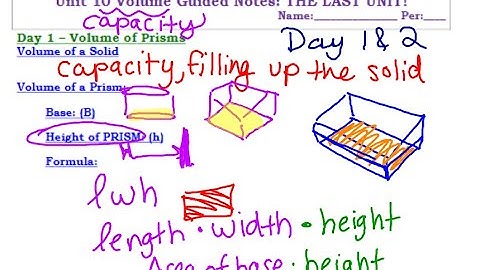 Unit 10 Volume Guided Notes: THE LAST UNIT!
capacity
Name: Per:
Day 1 – Volume of Prisms
Day 1 & 2
Volume of a Solid
capacity, filling up the solid
Volume of a Prism:
Base: (B)
Height of PRISM: (h)
h
Formula:
lwh
length · width · height
Area of base · height